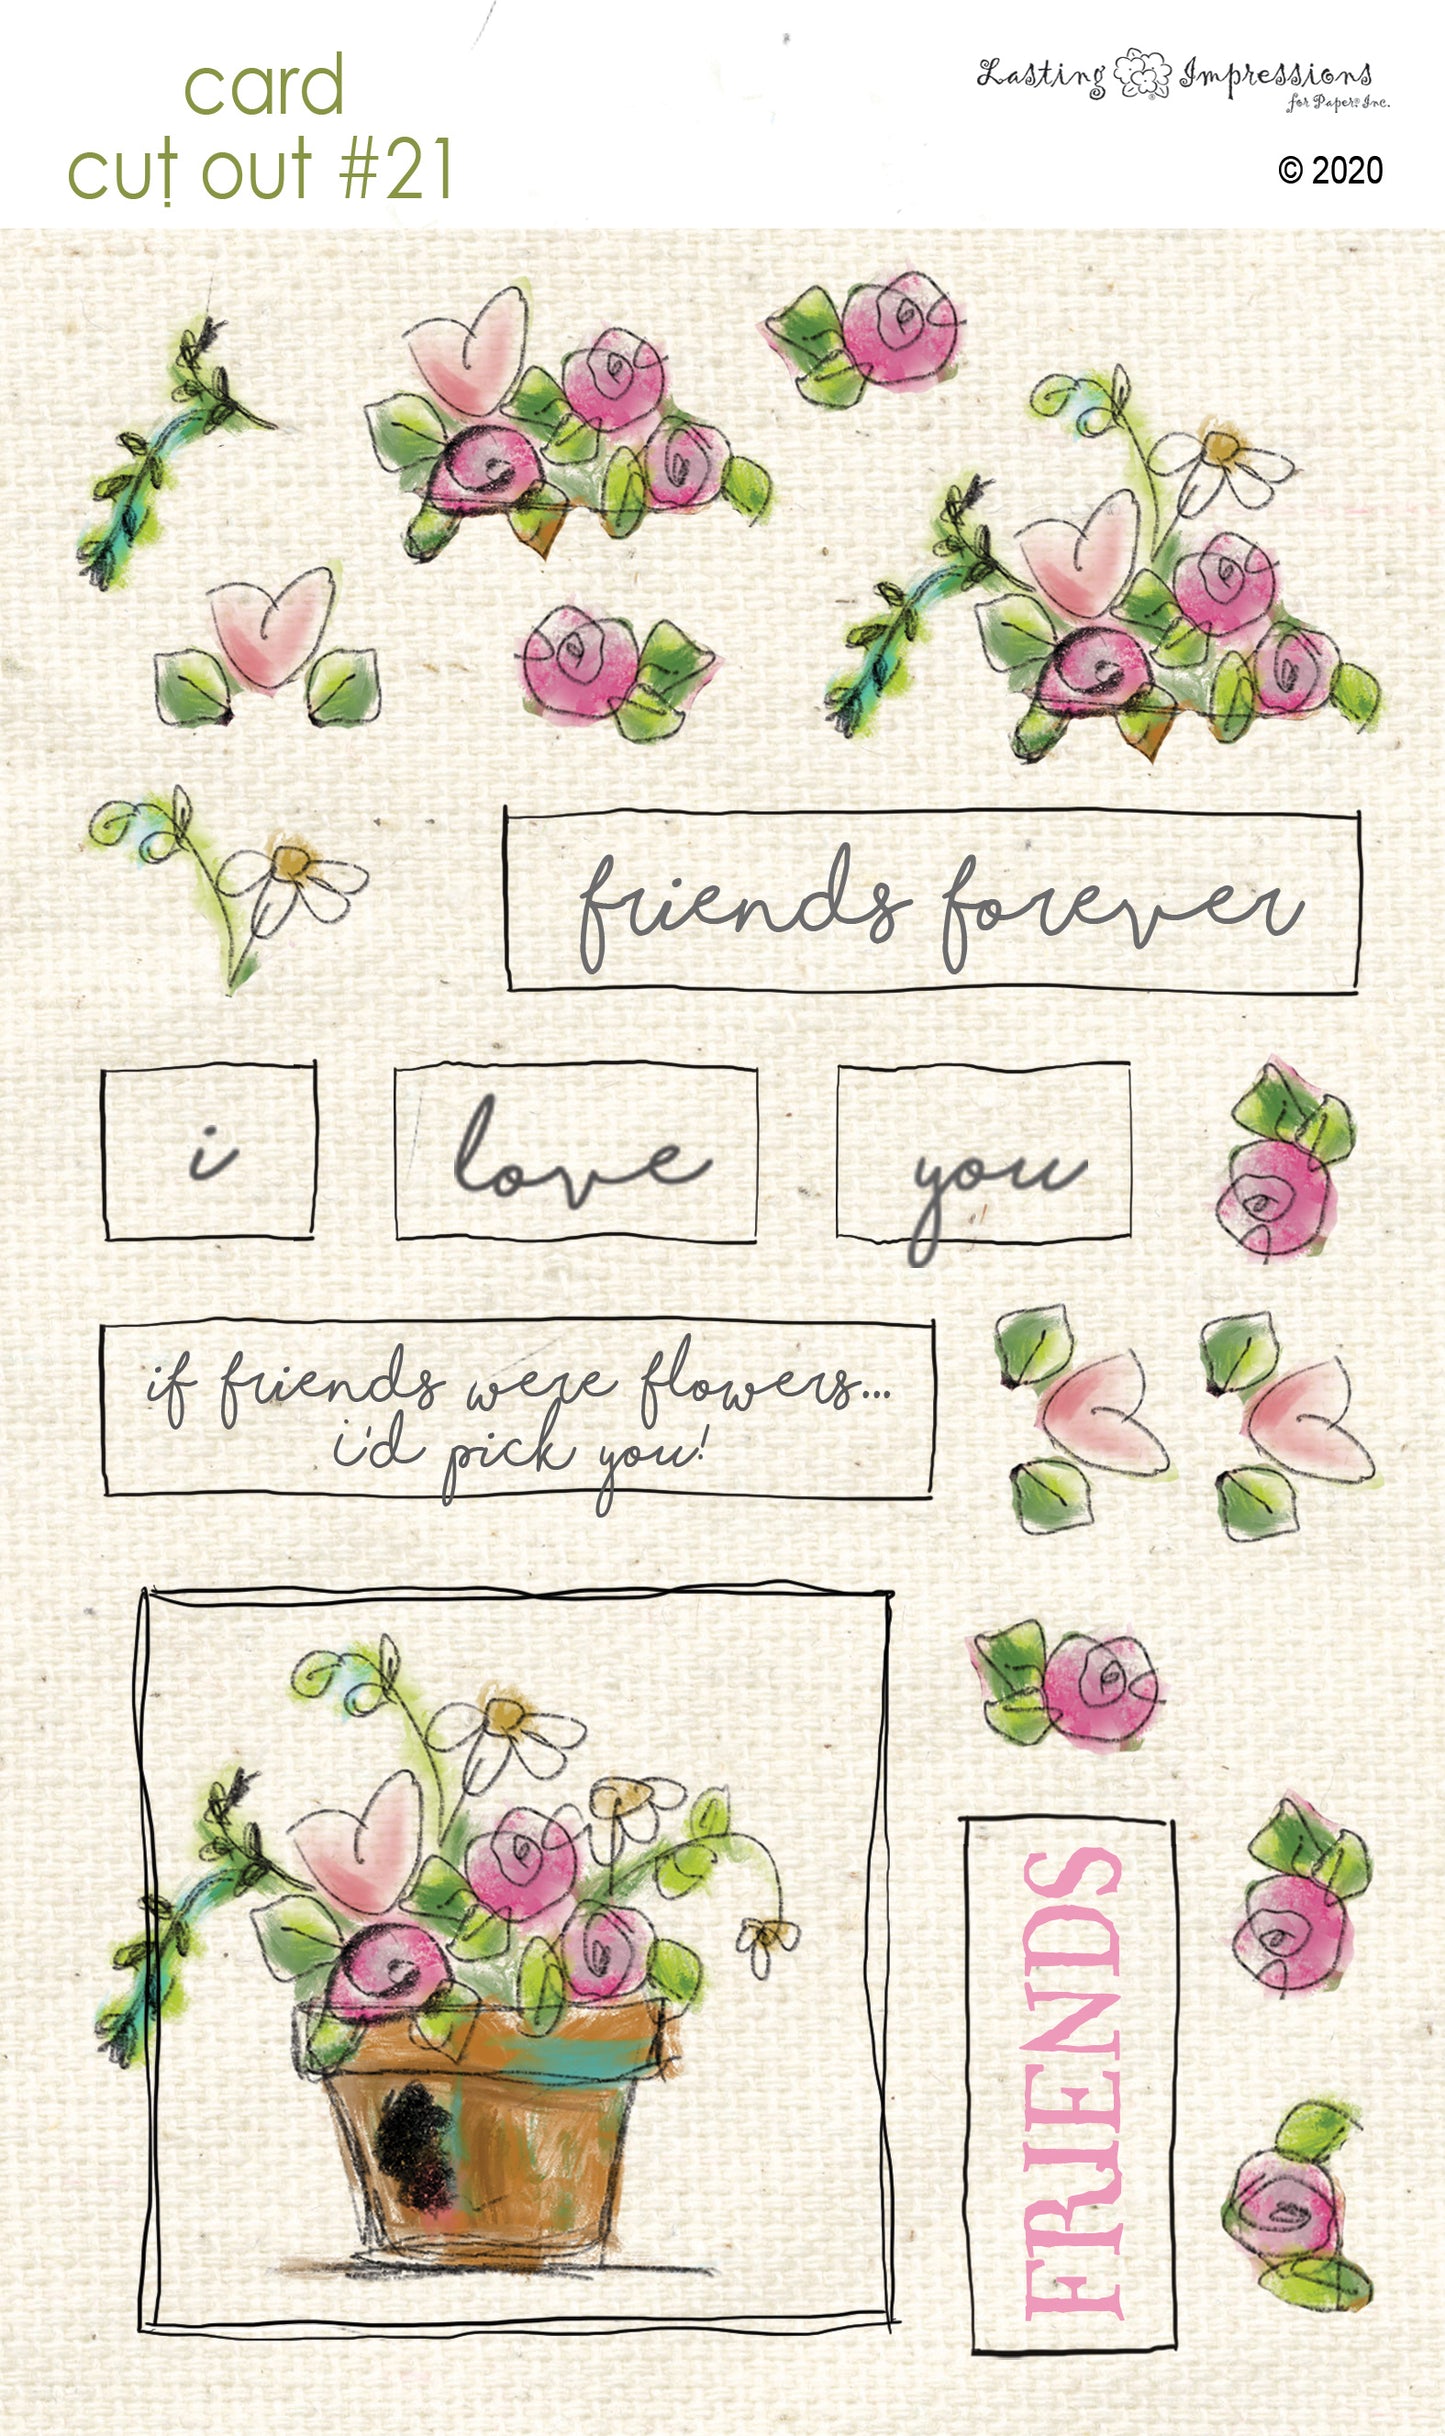 card
cut out #21
Lasting Impressions
for Paper, Inc.
© 2020
friends forever
i
love
you
if friends were flowers...
i'd pick you!
FRIENDS